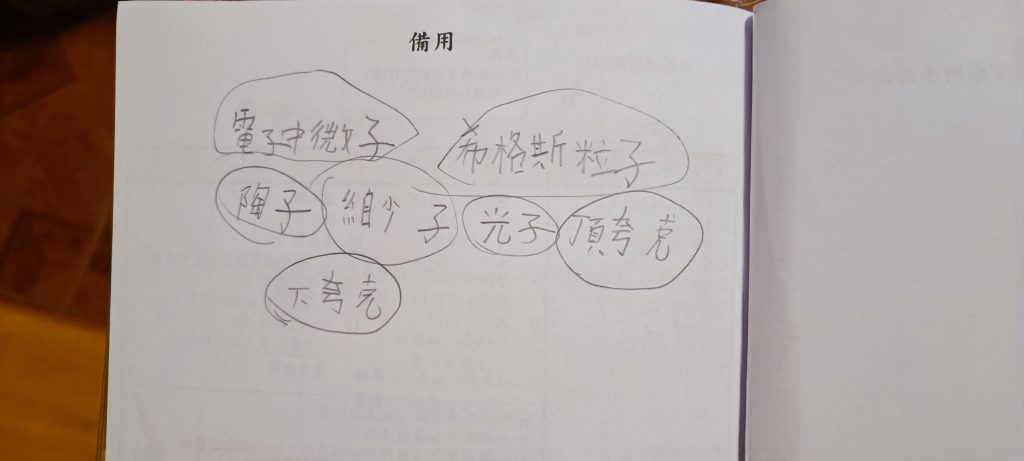 備用
電子中微子 希格斯粒子
陶子 緲子 光子 頂夸克
下夸克